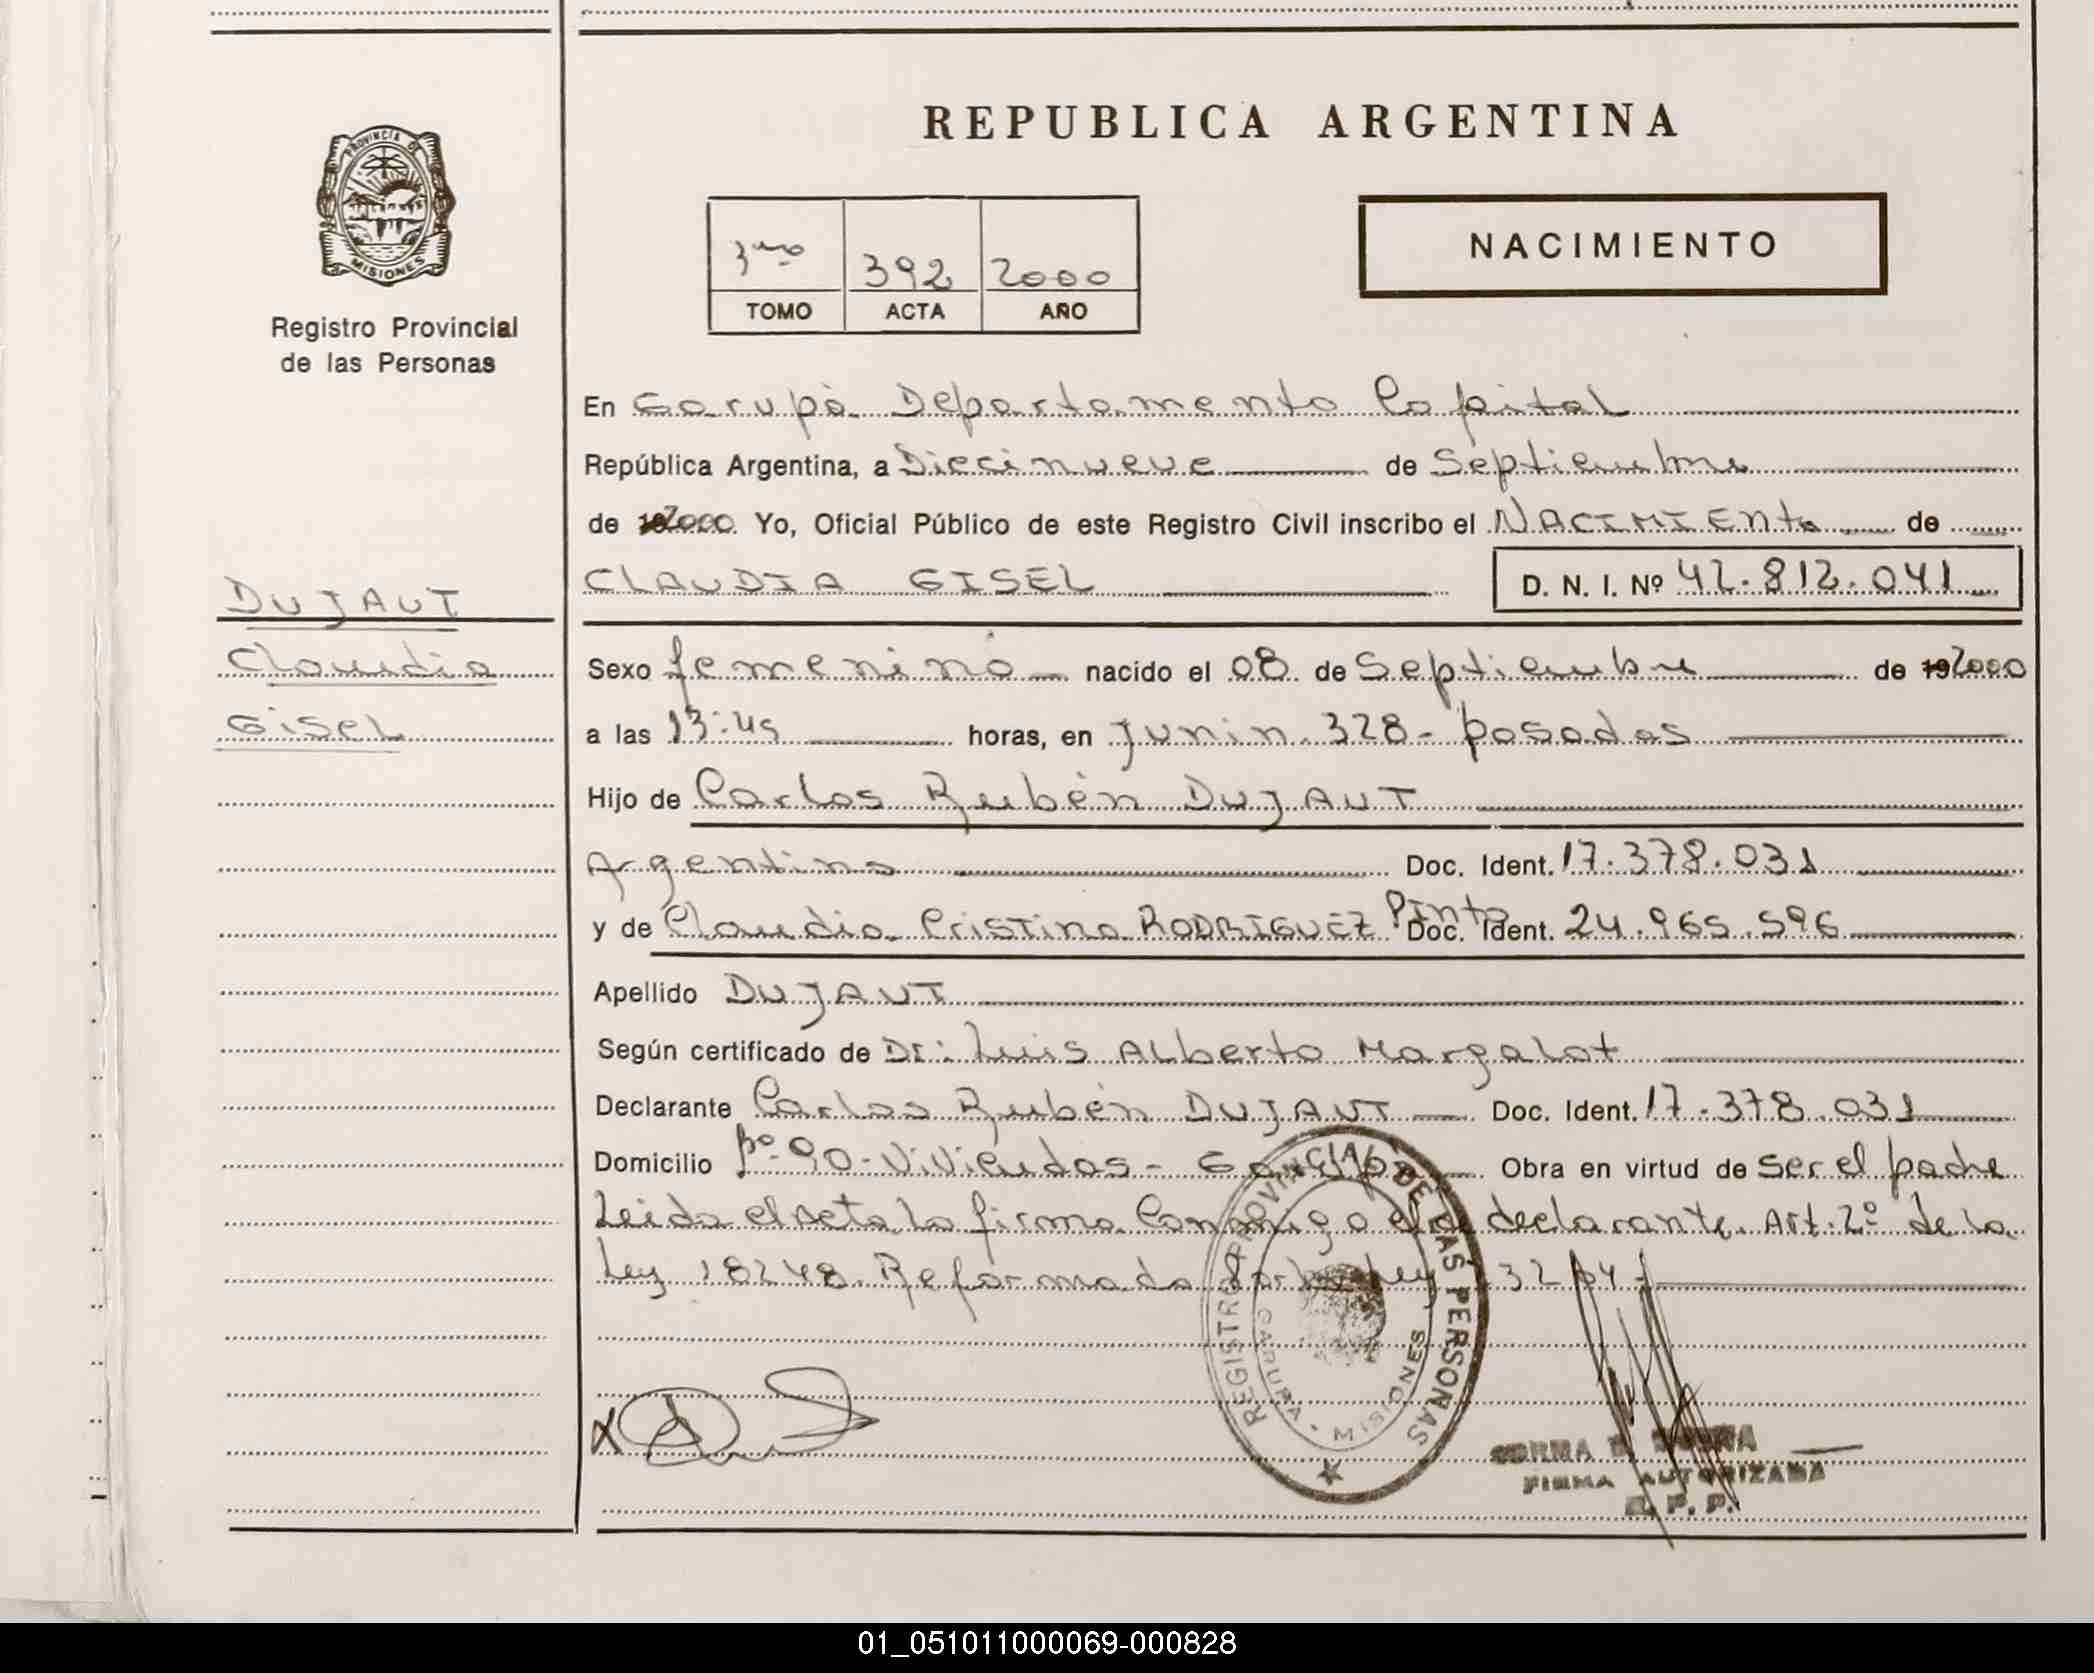 REPUBLICA ARGENTINA
PROVINCIA DE
MISIONES
Registro Provincial
de las Personas
3ero 392 2000
TOMO ACTA AÑO
NACIMIENTO
En Garupá Departamento Capital
República Argentina, a Diecinueve de Septiembre
de 2000 Yo, Oficial Público de este Registro Civil inscribo el NACIMIENto de
CLAUDIA GISEL D. N. I. Nº 42.812.041
DUJAUT
Claudia
GiseL
Sexo femenino nacido el 08 de Septiembre de 192000
a las 13:45 horas, en Junin 328 - Posadas
Hijo de Carlos Rubén DUJAUT
Argentino Doc. Ident. 17.378.031
y de Claudia Cristina RODRIGUEZ PINto Doc. Ident. 24.965.596
Apellido DUJAUT
Según certificado de Dr: Luis ALberto Margalot
Declarante Carlos Rubén DUJAUT Doc. Ident. 17.378.031
Domicilio Bº 90 - Viviendas - Garupá Obra en virtud de ser el padre
Leida el acta la firma Conmigo el declarante. Art. 2º de la
Ley 18248 Reformado por Ley 23264 -
REGISTRO PROVINCIAL DE LAS PERSONAS
GARUPA - MISIONES
FIRMA AUTORIZADA
R. P. P.
01_051011000069-000828